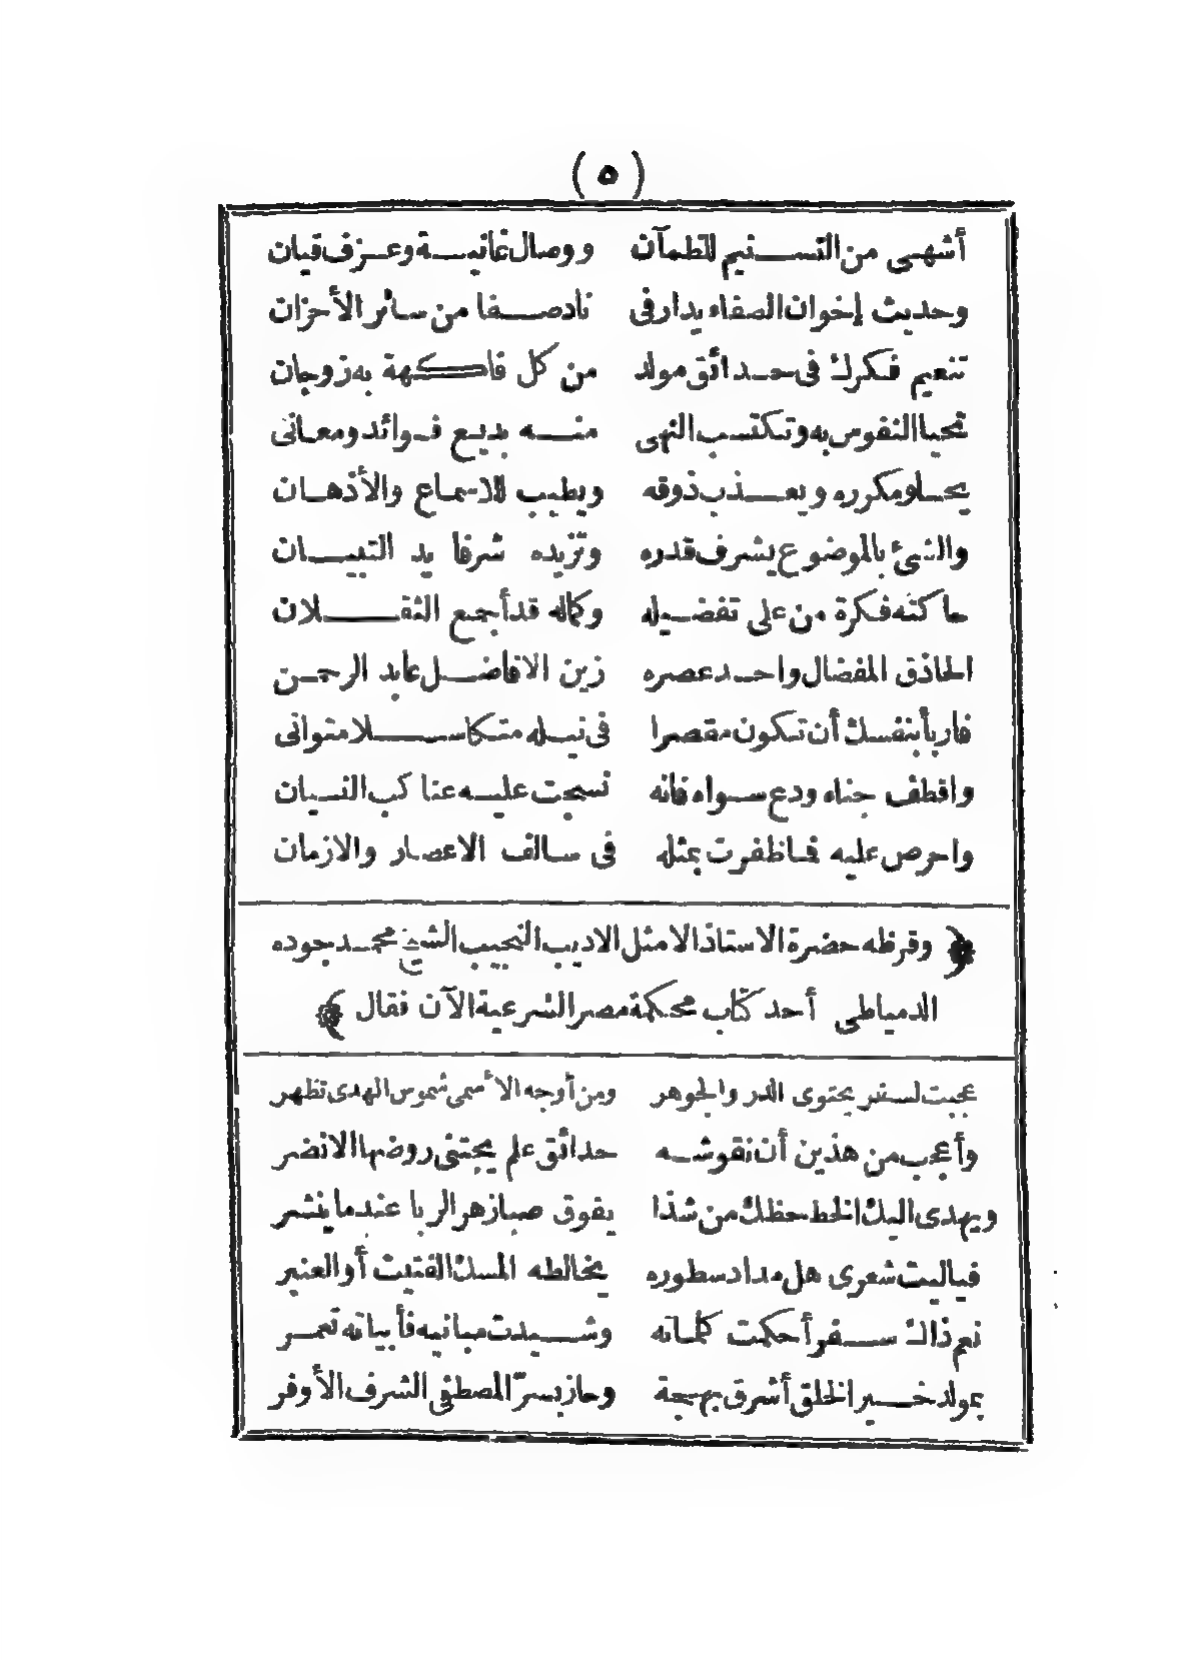 (٥)
أشهى من التسنيم للظمآن ووصال غانية وعزف قيان
وحديث إخوان الصفاء يدار فى نادصفا من سائر الأحزان
تنعيم فكرك فى حدائق مولد من كل فاكهة به زوجان
تحيا النفوس به وتكتسب النهى منه بديع فوائد ومعانى
يحلو مكرره ويعذب ذوقه ويطيب للاسماع والأذهان
والشئ بالموضوع يشرف قدره وتزيده شرفا يد التبيان
حاكته فكرة من على تفضيله وكماله قد أجمع الثقلان
الحاذق المفضال واحد عصره زين الافاضل عابد الرحمن
فاربأ بنفسك أن تكون مقصرا فى نيله متكاسلا متوانى
واقطف جناه ودع سواه فانه نسجت عليه عناكب النسيان
واحرص عليه فما ظفرت بمثله فى سالف الاعصار والازمان
﴿ وقرظه حضرة الاستاذ الامثل الاديب النجيب الشيخ محمد جوده
الدمياطى أحد كتاب محكمة مصر الشرعية الآن فقال ﴾
عجبت لسفر يحتوى الدر والجوهر ومن أوجه الأسمى شموس الهدى تظهر
وأعجب من هذين أن نقوشه حدائق علم يجتنى روضها الانضر
ويهدى اليك الخط حظك من شذا يفوق صبازهر الربا عندما ينشر
فياليت شعرى هل مداد سطوره يخالطه المسك الفتيت أو العنبر
نعم ذاك سفر أحكمت كلماته وشيدت مبانيه فأبياته تعمر
بمولد خير الخلق أشرق بهجة وحاز بسرّ المصطفى الشرف الأوفر